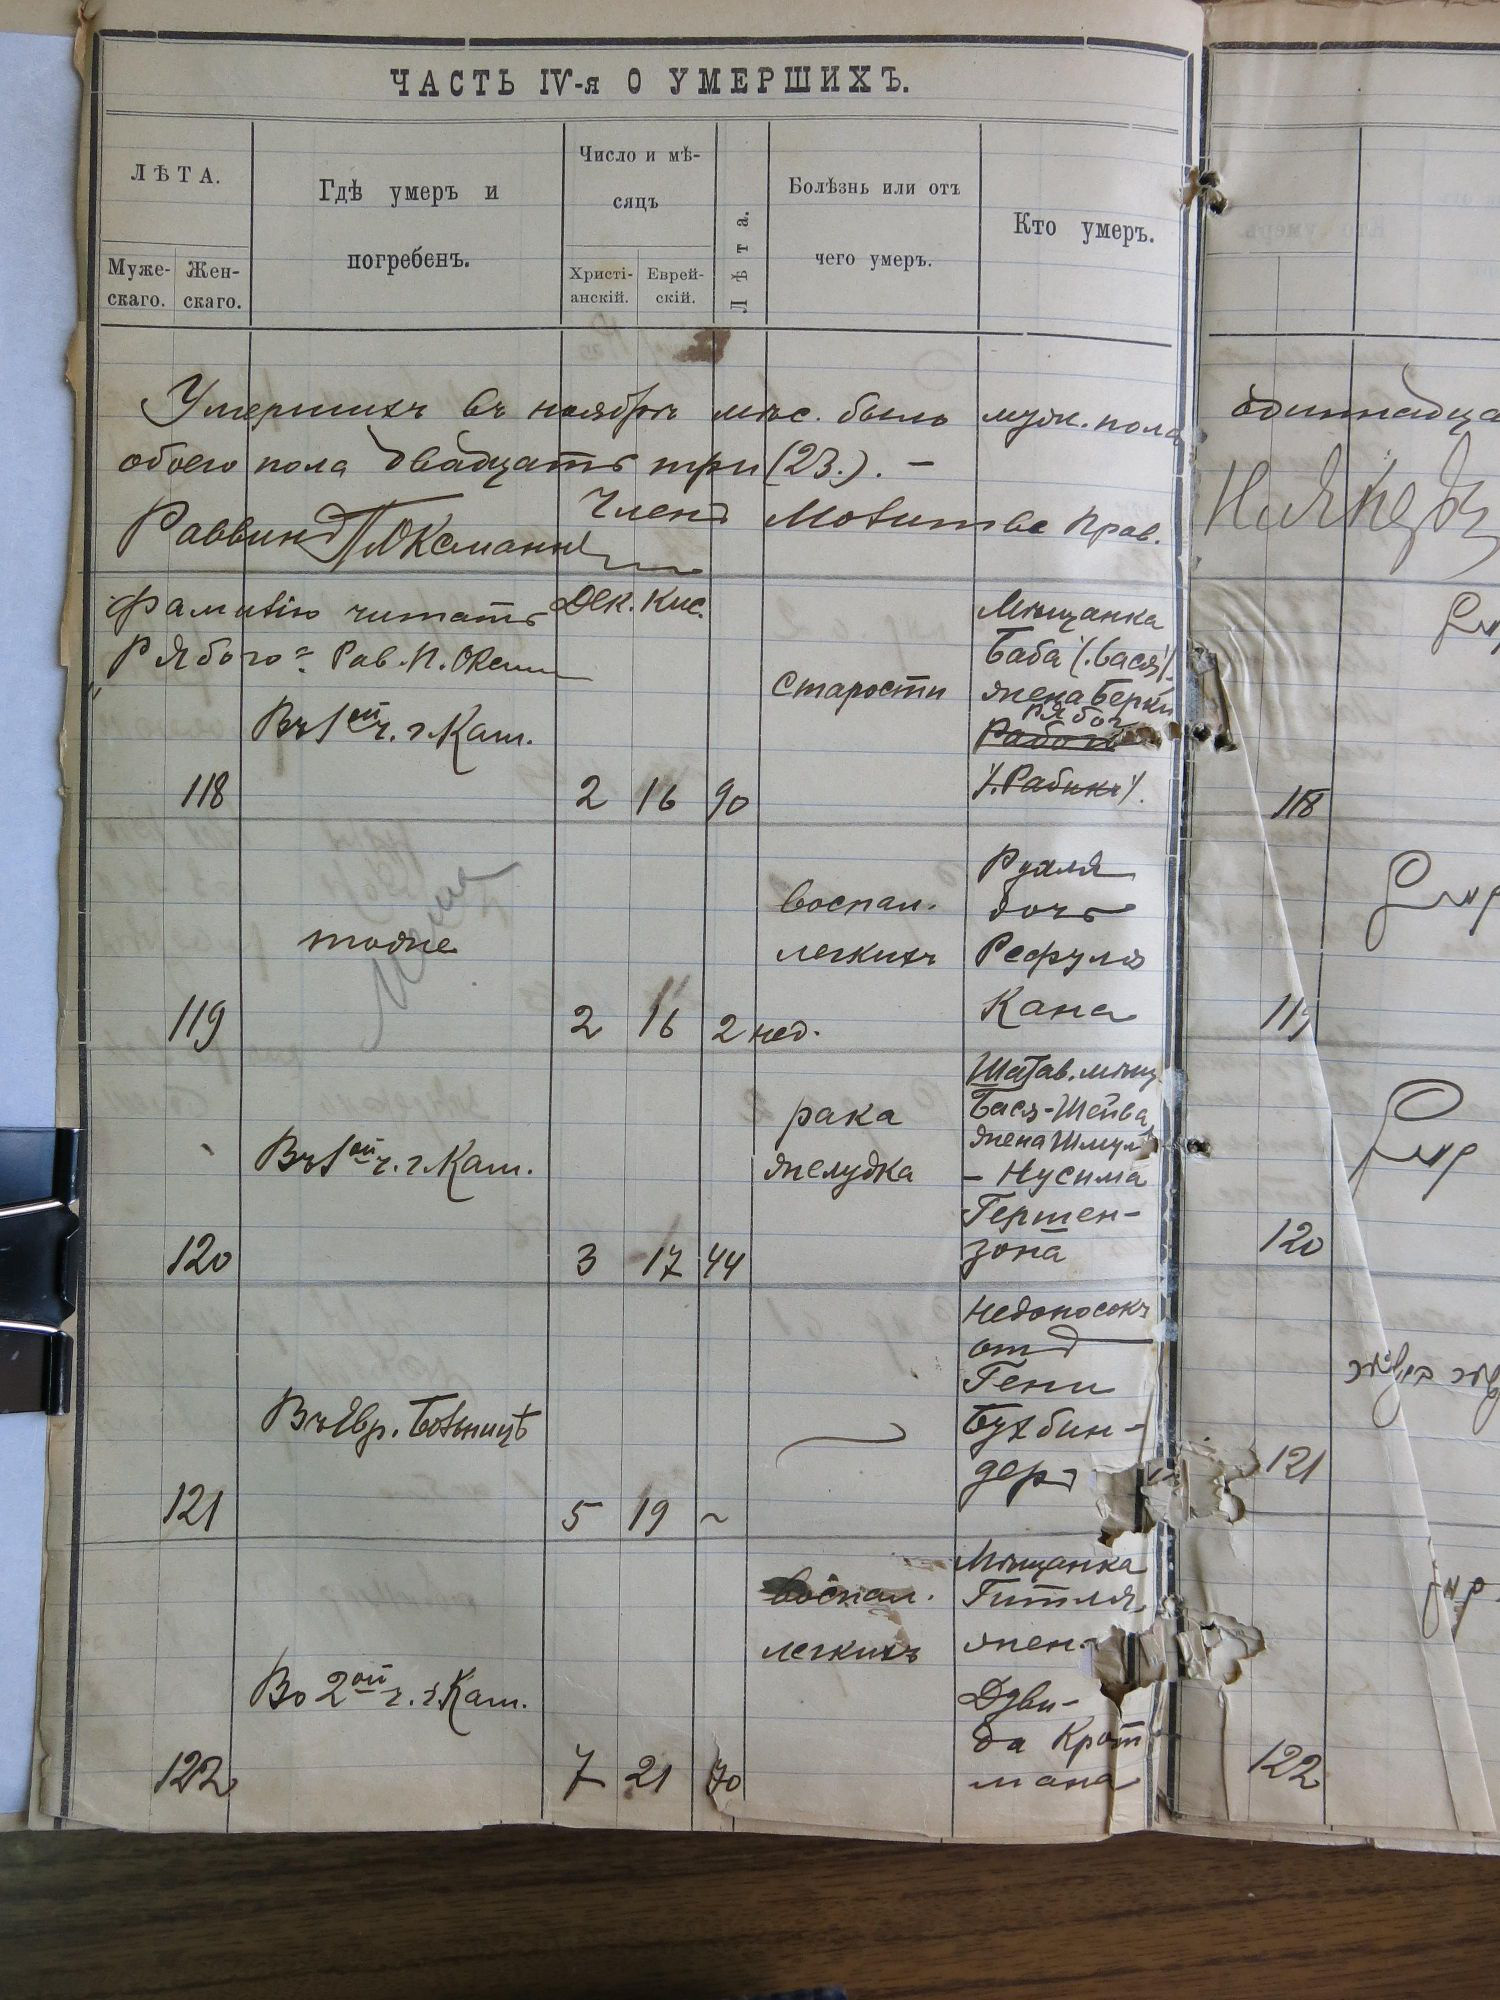 ЧАСТЬ IV-я О УМЕРШИХЪ.
ЛѢТА.
Муже-
скаго.
Жен-
скаго.
Гдѣ умеръ и
погребенъ.
Число и мѣ-
сяцъ
Христі-
анскій.
Еврей-
скій.
Лѣта.
Болѣзнь или отъ
чего умеръ.
Кто умеръ.
Умершихъ въ ноябрѣ мѣс. было муж. пола одиннадца
обоего пола двадцать три (23.). –
Раввинъ Членъ Молитве Прав.
Фамилію читать
Рябого Рав.
Дек. Кис.
118
Въ 1ой ч. г. Кам.
2 16 90
Старости
Мѣщанка
Баба /.Вася/.
жена Берки
Рябог
/.Рабикъ/.
118
119
тоже
2 16 2 нед.
Воспал.
легкихъ
Рухля
дочь
Рефуля
Кана
119
120
Въ 1ой ч. г. Кам.
3 17 44
рака
желудка
Шатав. мѣщ
Бася-Шейва
жена Шмуля
- Нусима
Гершен-
зона
120
121
Въ Евр. Больницѣ
5 19 ~
недоносокъ
отъ
Гени
Бухбин-
деръ
121
122
Во 2ой ч. г. Кам.
7 21 70
Воспал.
легкихъ
Мѣщанка
Гитля
жен
Дуви-
да Крот-
мана
122